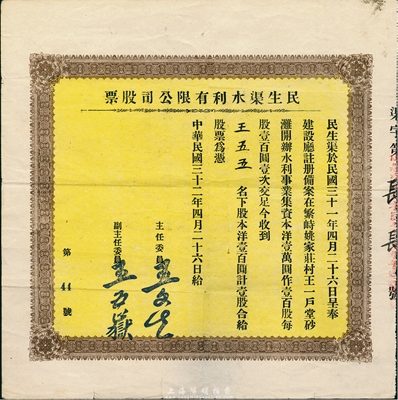 民生渠水利有限公司股票
民生渠於民國三十一年四月二十六日呈奉
建設廳註册備案在繁峙姚家莊村王一戶堂砂
灘開辦水利事業集資本洋壹萬圓作壹百股每
股壹百圓壹次交足今收到
王五五 名下股本洋壹百圓計壹股合給
股票為憑
中華民國三十二年四月二十六日給
主任委員
副主任委員 王五嶽
第 44 號
渠字第 長 長 號